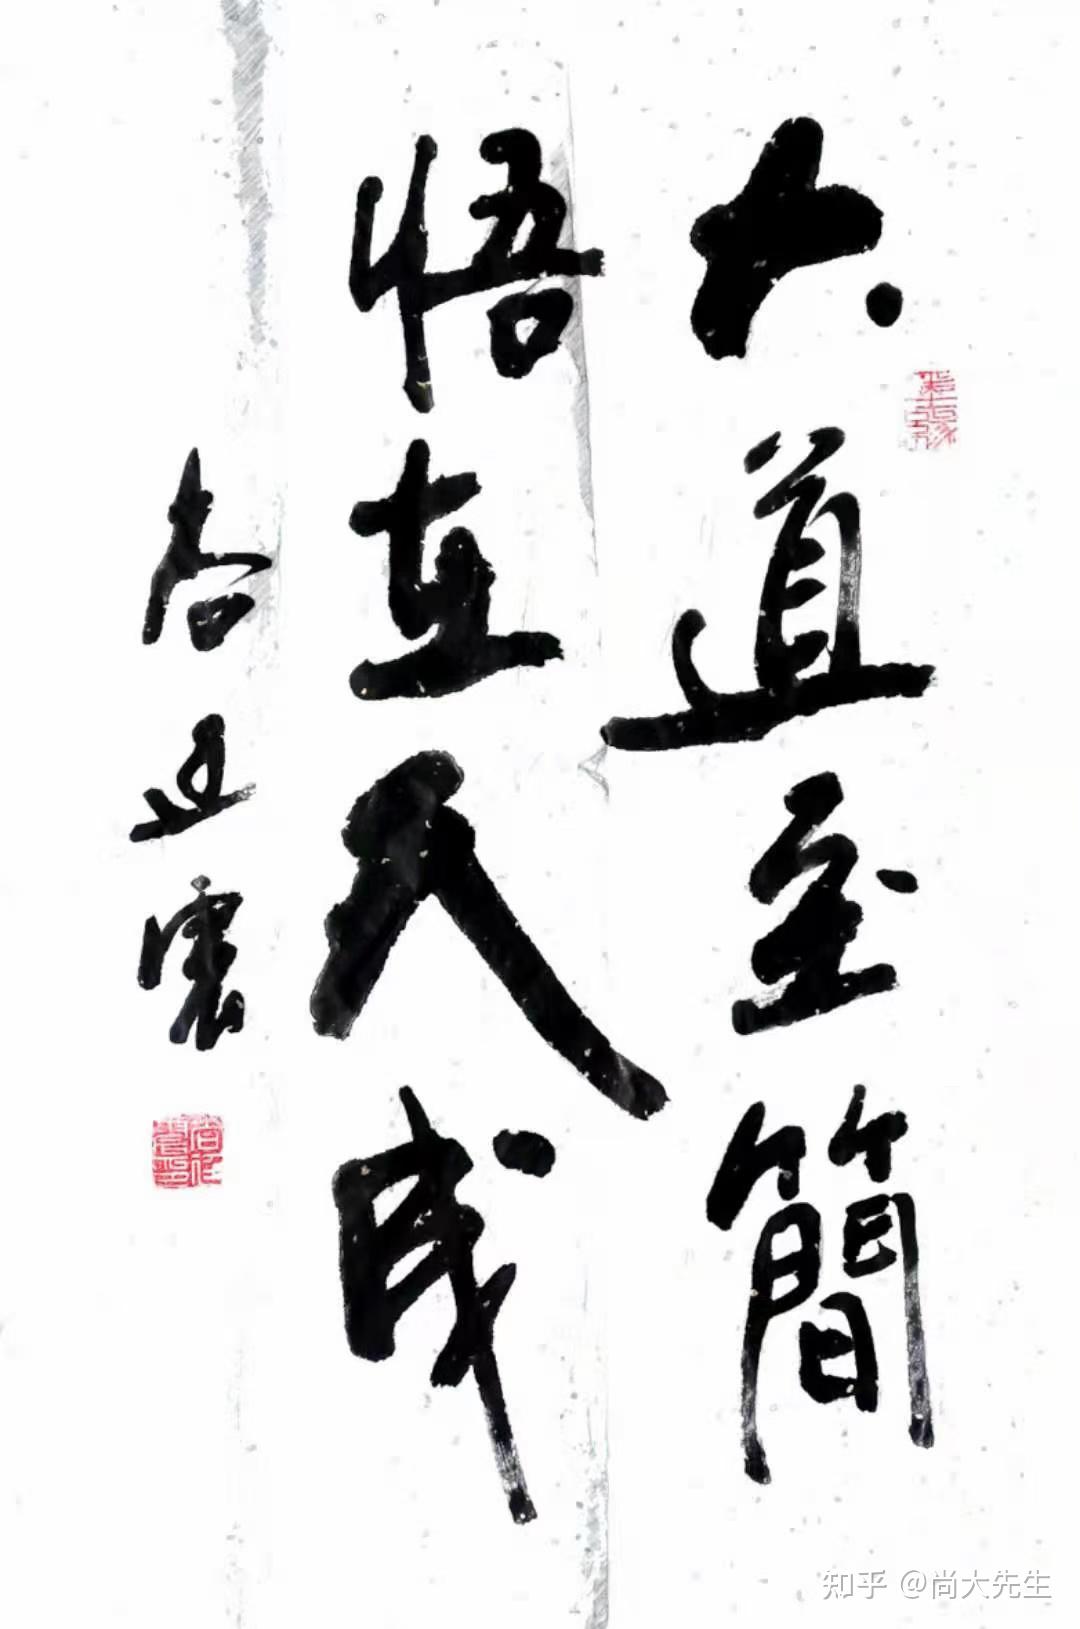 大道至簡
悟在天成
尚廷震
知乎 @尚大先生